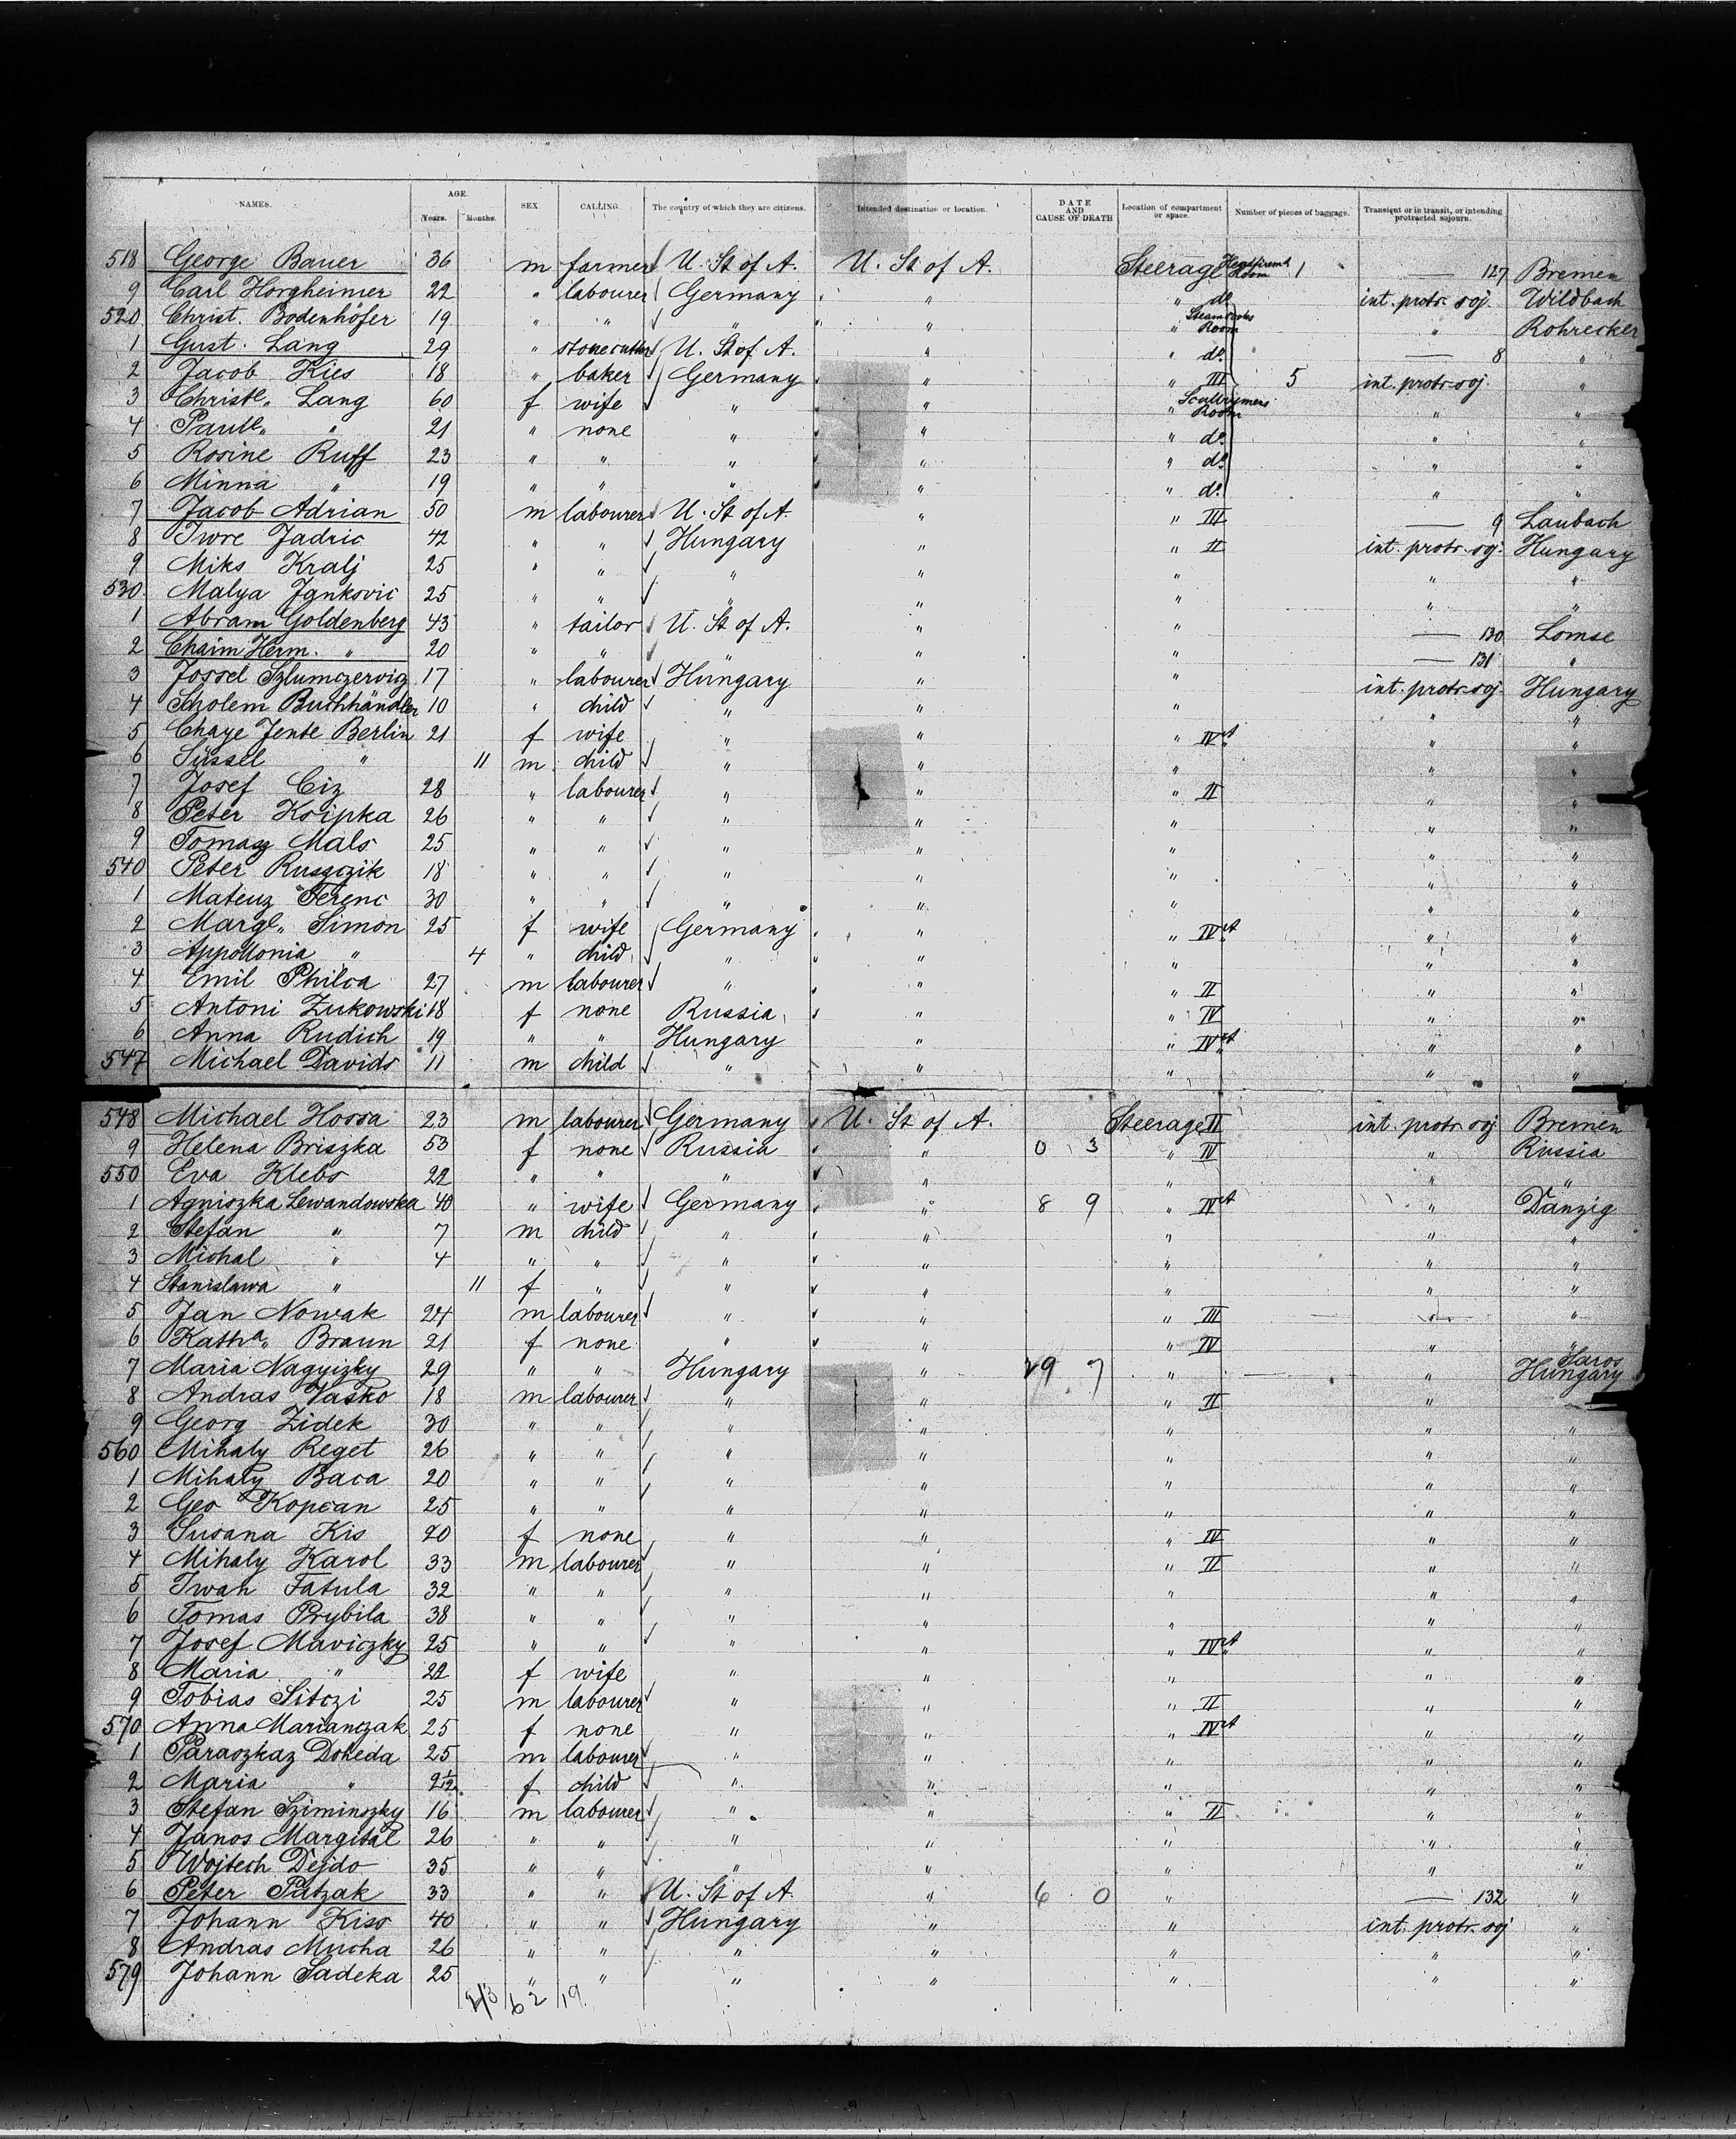 NAMES. AGE. Years. Months. SEX. CALLING. The country of which they are citizens. Intended destination or location. DATE AND CAUSE OF DEATH Location of compartment or space. Number of pieces of baggage. Transient or in transit, or intending protracted sojourn.
518 George Bauer 36 m farmer U. St of A. U. St of A. Steerage Room 1 — 127 Bremen
9 Carl Horgheimer 22 " labourer Germany " " do int. protr. soj. Wildbach
520 Christ. Bodenhöfer 19 " " " " " Room " Rohrecker
1 Gust. Lang 29 " stonecutter U. St of A. " " do — 8 "
2 Jacob Kies 18 " baker Germany " " III 5 int. protr. soj. "
3 Christe. Lang 60 f wife " " " Room " "
4 Paule. " 21 " none " " " do " "
5 Rosine Ruff 23 " " " " " do " "
6 Minna " 19 " " " " " do " "
7 Jacob Adrian 50 m labourer U. St of A. " " III — 9 Laubach
8 Iwre Jadric 42 " " Hungary " " II int. protr. soj. Hungary
9 Miks Kralj 25 " " " " " " "
530 Malya Jankovic 25 " " " " " " "
1 Abram Goldenberg 43 " tailor U. St of A. " " — 130 Lomse
2 Chaim Herm. " 20 " " " " " — 131 "
3 Jossel Szlumczervig 17 " labourer Hungary " " int. protr. soj. Hungary
4 Scholem Buchhändler 10 " child " " " " "
5 Chaye Jente Berlin 21 f wife " " " IVA " "
6 Süssel " 11 m child " " " " "
7 Josef Ciz 28 " labourer " " " II " "
8 Peter Koipka 26 " " " " " " "
9 Tomasz Mals 25 " " " " " " "
540 Peter Ruszczik 18 " " " " " " "
1 Mateuz Ferenc 30 " " " " " " "
2 Marge. Simon 25 f wife Germany " " IVA " "
3 Appollonia " 4 " child " " " " "
4 Emil Philca 27 m labourer " " " II " "
5 Antoni Zukowski 18 f none Russia " " IV " "
6 Anna Rudich 19 " " Hungary " " IVA " "
547 Michael Davids 11 m child " " " " "
548 Michael Hossa 23 m labourer Germany U. St of A. Steerage II int. protr. soj Bremen
9 Helena Briszka 53 f none Russia " 0 3 " IV " Russia
550 Eva Klebs 22 " " " " " " "
1 Agniszka Lewandowska 40 " wife Germany " 8 9 " IVA " Danzig
2 Stefan " 7 m child " " " " "
3 Michal " 4 " " " " " " "
4 Stanislawa " 11 f " " " " " "
5 Jan Nowak 24 m labourer " " " III " "
6 Katha. Braun 21 f none " " " IV " "
7 Maria Nagyizky 29 " " Hungary " 29 7 " " Saros Hungary
8 Andras Vasko 18 m labourer " " " II " "
9 Georg Zidek 30 " " " " " " "
560 Mihaly Reget 26 " " " " " " "
1 Mihaly Baca 20 " " " " " " "
2 Geo Kopcan 25 " " " " " " "
3 Susana Kis 20 f none " " " IV " "
4 Mihaly Karol 33 m labourer " " " II " "
5 Iwan Fatula 32 " " " " " " "
6 Tomas Prybila 38 " " " " " " "
7 Josef Maviczky 25 " " " " " IVA " "
8 Maria " 22 f wife " " " " "
9 Tobias Sitczi 25 m labourer " " " II " "
570 Anna Marianczak 25 f none " " " IVA " "
1 Paraszkaz Doheda 25 m labourer " " " " "
2 Maria " 2 1/12 f child " " " " "
3 Stefan Sziminszky 16 m labourer " " " II " "
4 Janos Margital 26 " " " " " " "
5 Wojtech Dejdo 35 " " " " " " "
6 Peter Patzak 33 " " U. St of A. " 6 0 " — 132 "
7 Johann Kiss 40 " " Hungary " " int. protr. soj "
8 Andras Mucha 26 " " " " " " "
579 Johann Sadeka 25 " " " " " " "
62 19